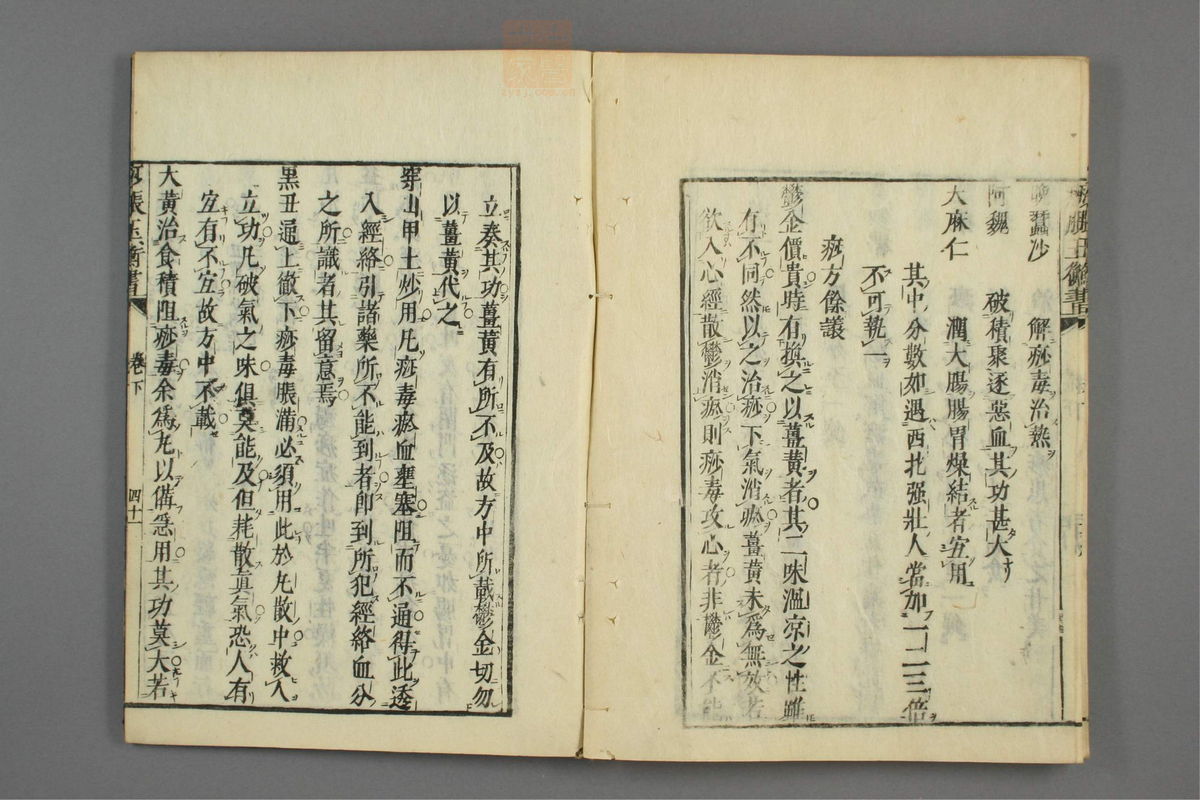 晚蠶沙 解痧毒治熱
阿魏 破積聚逐惡血其功甚大
大麻仁 潤大腸腸胃燥結者宜用
其中分數如遇西北强壯人當加一二三倍
不可執一
痧方餘議
鬱金價貴時有換之以薑黃者其二味溫凉之性雖
有不同然以之治痧下氣消瘀薑黃未爲無效若
欲入心經散鬱消瘀則痧毒攻心者非鬱金不能
立奏其功薑黃有所不及故方中所載鬱金切勿
以薑黃代之
穿山甲土炒用凢痧毒瘀血壅塞阻而不通得此透
入經絡引諸藥所不能到者卽到所犯經絡血分
之所識者其留意焉
黑丑通上徹下痧毒脹滿必須用此於凢散中救人
立功凢破氣之味俱莫能及但耗散眞氣恐人有
宜有不宜故方中不載
大黃治食積阻痧毒余爲丸以備急用其功莫大若
痧脹玉衡書 卷下 四十一